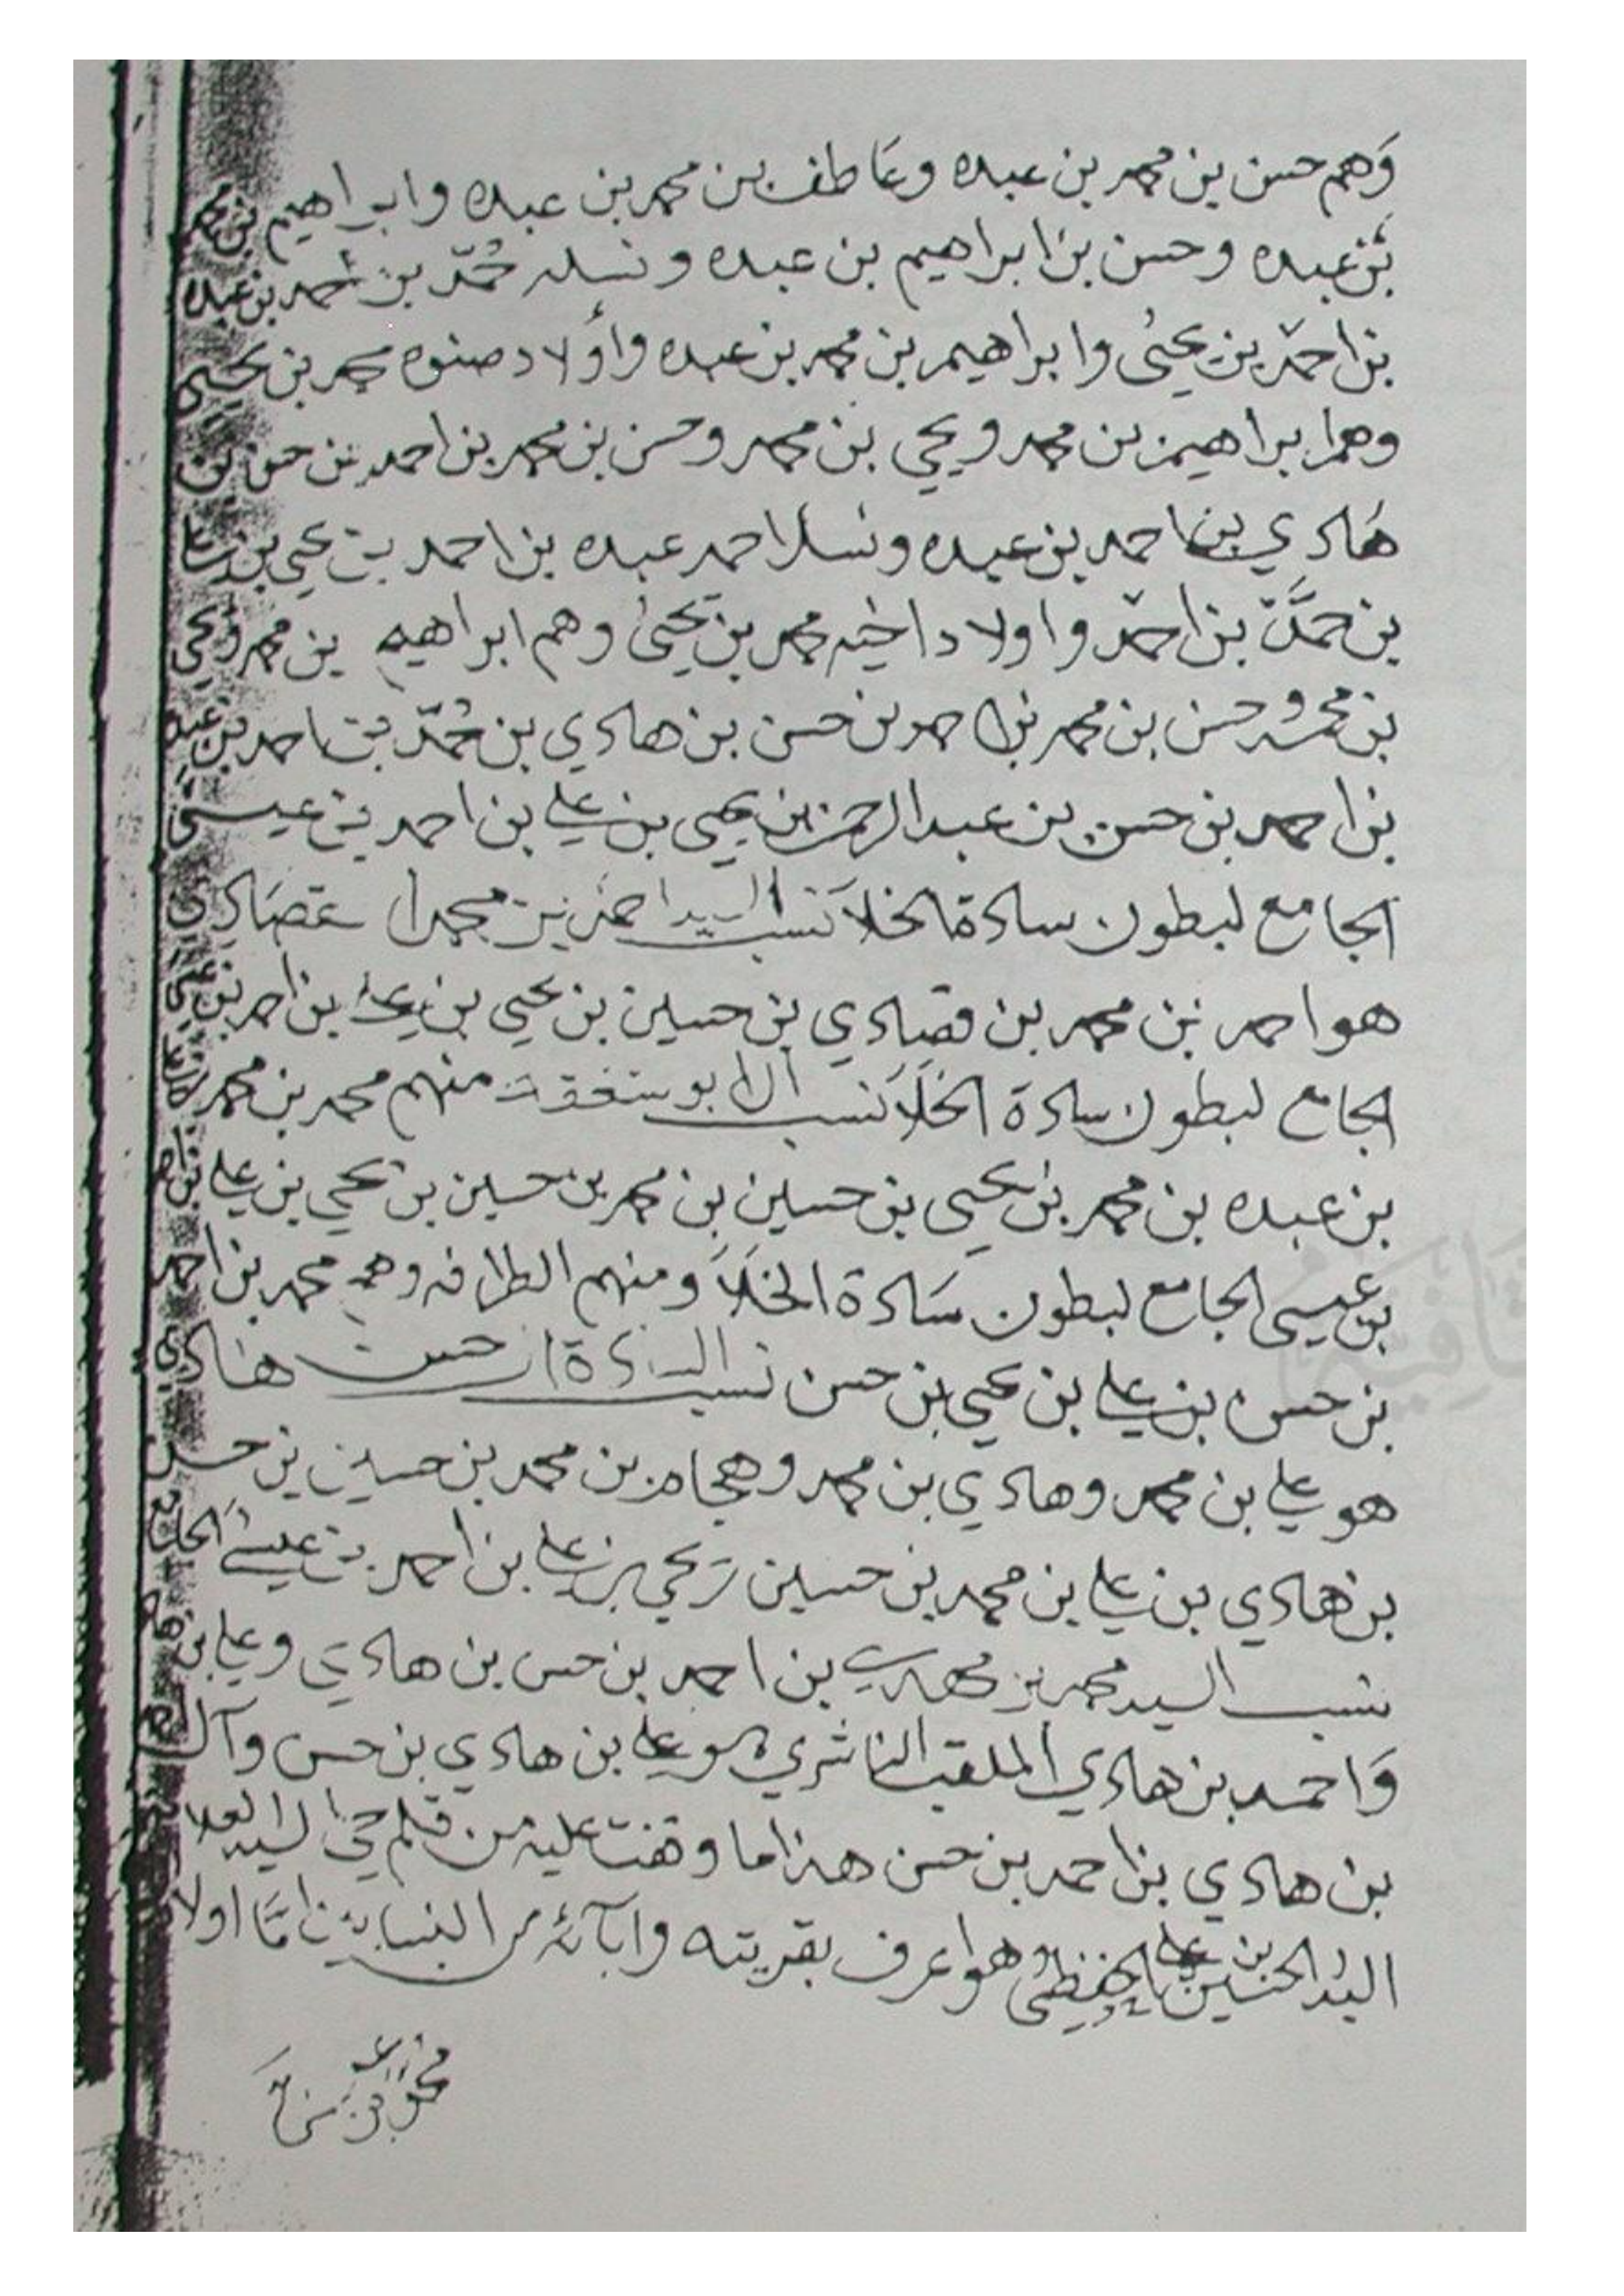 وهم حسن بن محمد بن عبده وعاطف بن محمد بن عبده وابراهيم بن محمد
بن عبده وحسن بن ابراهيم بن عبده ونسله محمد بن أحمد بن عبده
بن احمد بن يحيى وابراهيم بن محمد بن عبده وأولاد صنوه محمد بن يحيى
وهم ابراهيم بن محمد ويحي بن محمد وحسن بن محمد بن احمد بن حسن بن
هادي بن احمد بن عبده ونسل احمد عبده بن احمد بن يحي بن علي
بن حمد بن احمد واولاد اخيه محمد بن يحيى وهم ابراهيم بن محمد ويحي
بن محمد وحسن بن محمد بن احمد بن حسن بن هادي بن محمد بن احمد بن عبده
بن احمد بن حسن بن عبد الرحمن بن يحيى بن علي بن احمد بن عيسى
الجامع لبطون سادة الخلا نسب السيد احمد بن محمد
هو احمد بن محمد بن قصادي بن حسين بن يحي بن علي بن احمد بن
الجامع لبطون سادة الخلا نسب ال ابو منهم محمد بن محمد
بن عبده بن محمد بن يحيى بن حسين بن محمد بن حسين بن يحي بن علي بن
بن عيسى الجامع لبطون سادة الخلا ومنهم الطرافه وهم محمد بن احمد
بن حسن بن علي بن يحي بن حسن نسب السادة حسن هادي
هو علي بن محمد وهادي بن محمد وهجام بن محمد بن حسين بن حسن
بن هادي بن علي بن محمد بن حسين بن يحي بن علي بن احمد بن عيسى الجامع
نسب السيد محمد بن مهدي بن احمد بن حسن بن هادي وعلي بن
واحمد بن هادي الملقب الناشري هو علي بن هادي بن حسن وآل
بن هادي بن احمد بن حسن هذا ما وقفت عليه من قلم السيد العلامة
السيد الحسين بن علي الحفظي وهو اعرف بقريته وابآئه من النسابين امّا اولاد